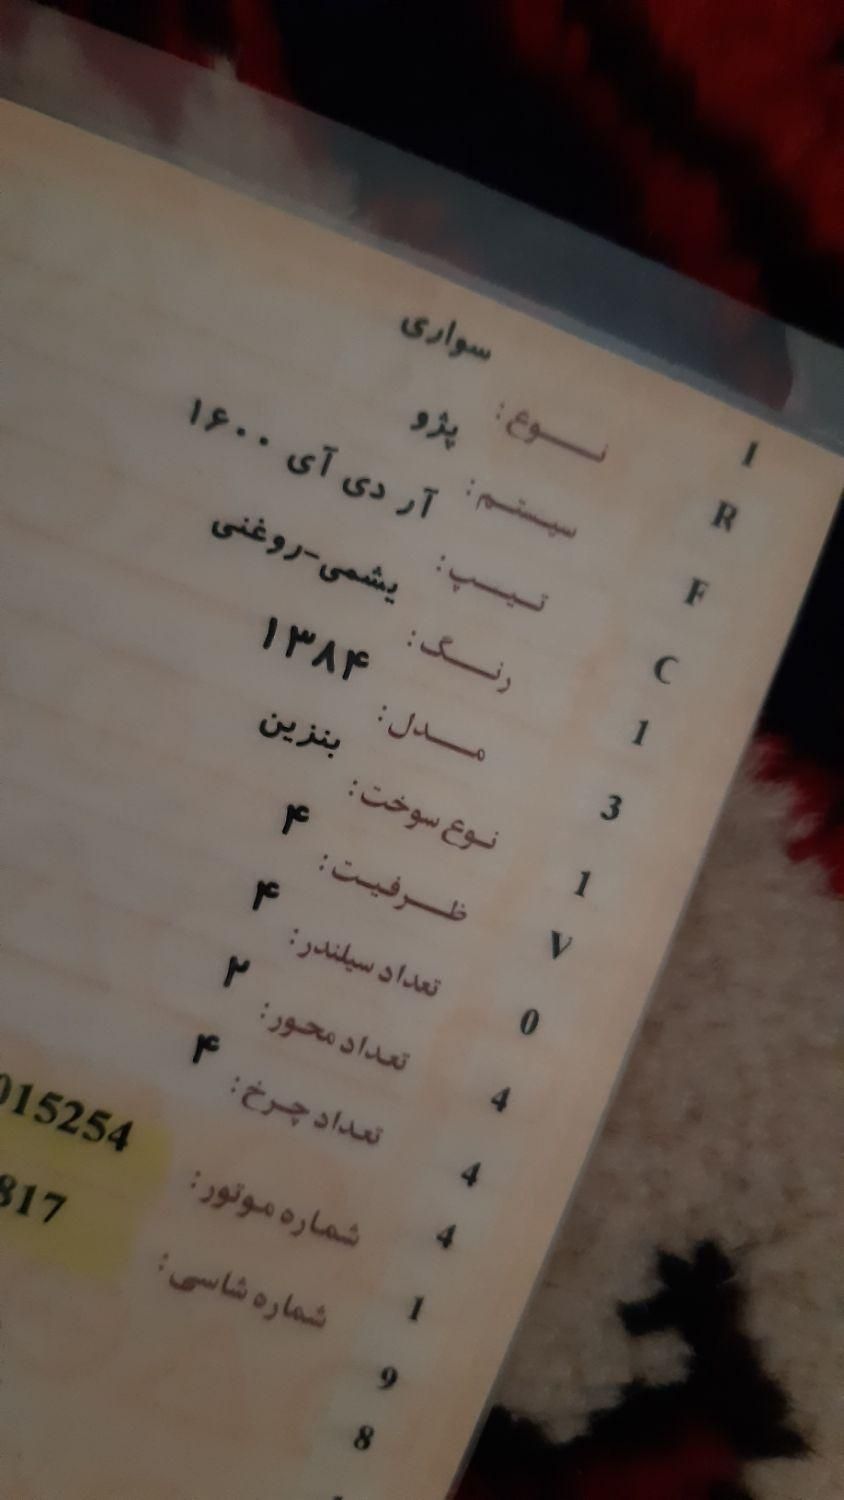 نوع: سواری
سیستم: پژو
تیپ: آر دی آی ۱۶۰۰
رنگ: یشمی-روغنی
مدل: ۱۳۸۴
نوع سوخت: بنزین
ظرفیت: ۴
تعداد سیلندر: ۴
تعداد محور: ۲
تعداد چرخ: ۴
شماره موتور: 015254
شماره شاسی: 817
I
R
F
C
1
3
1
V
0
4
4
4
1
9
8